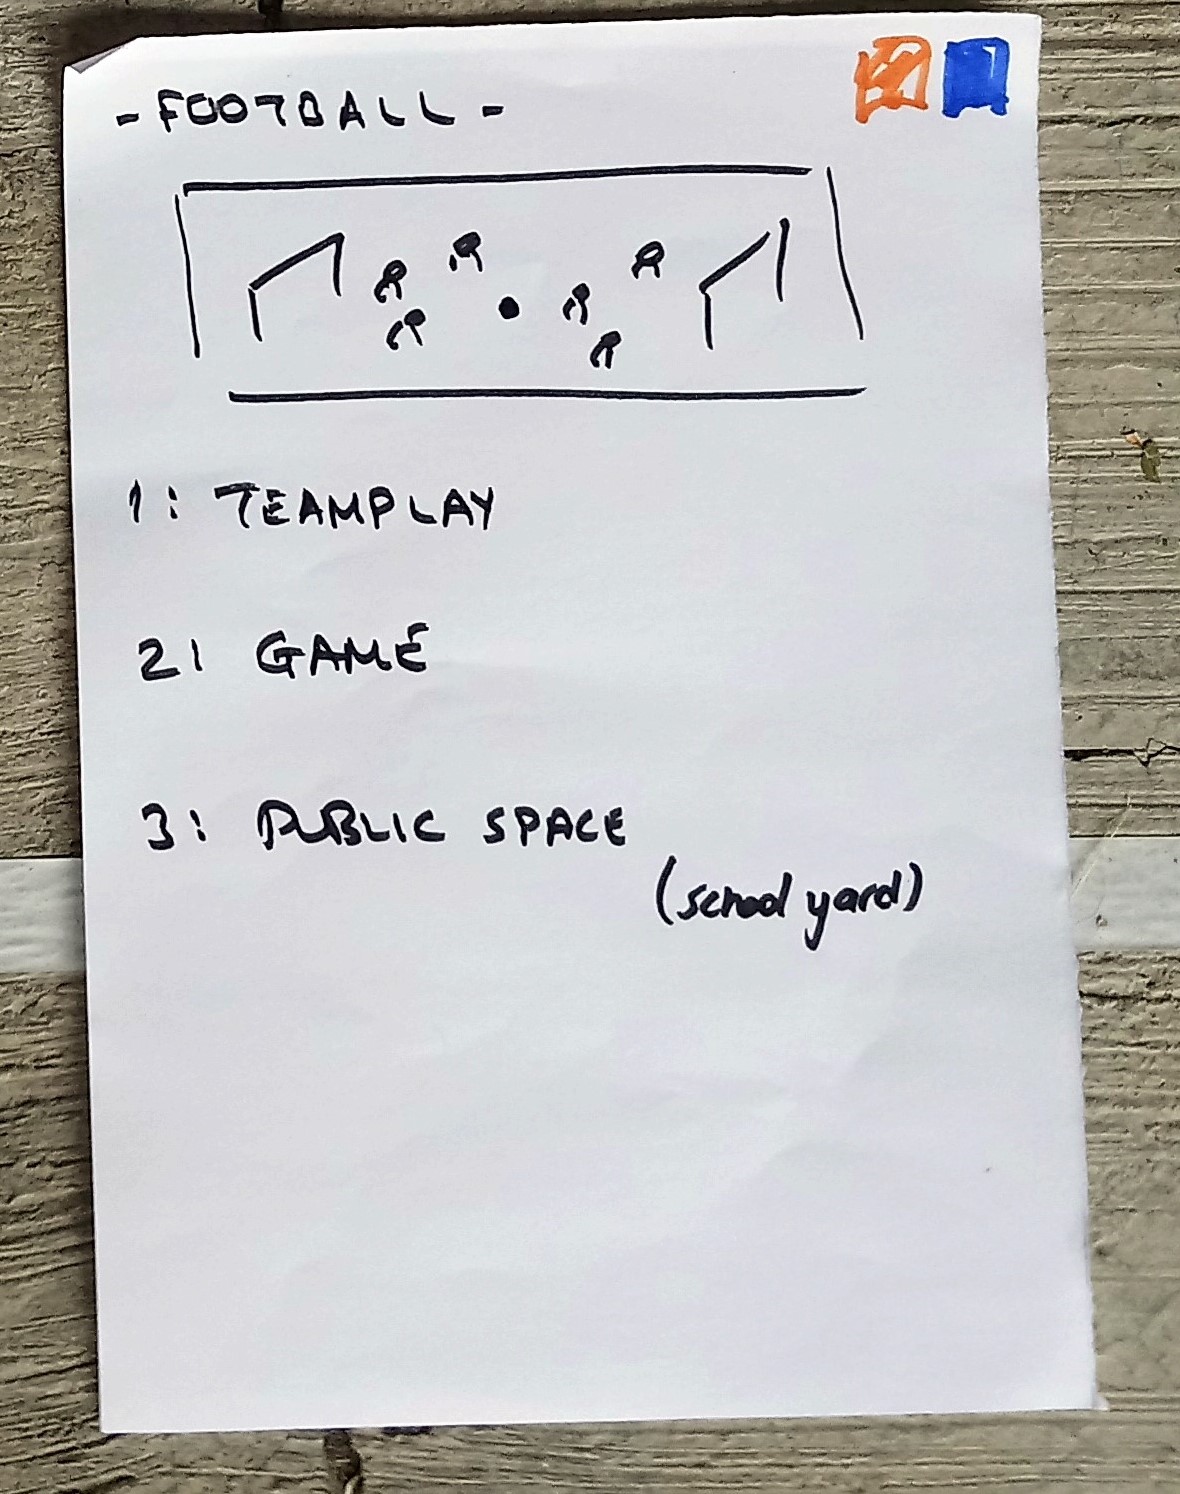 - FOOTBALL -
1: TEAMPLAY
2: GAME
3: PUBLIC SPACE
(school yard)